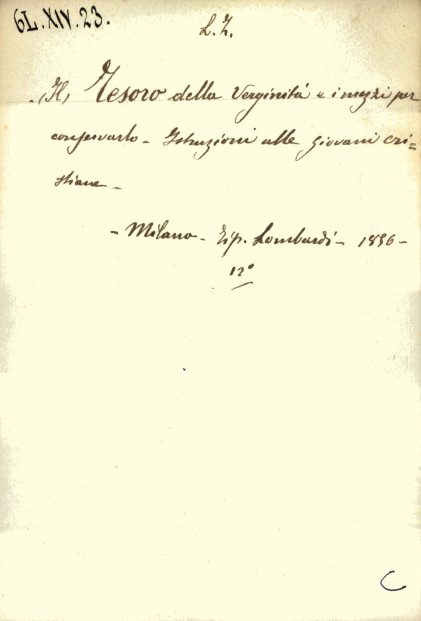 6L.XIV.23.
L. Z.
(Il) Tesoro della Verginità e i mezzi per
conservarlo - Istruzioni alle giovani cri=
stiane -
- Milano - Tip. Lombardi - 1856 -
12°
C